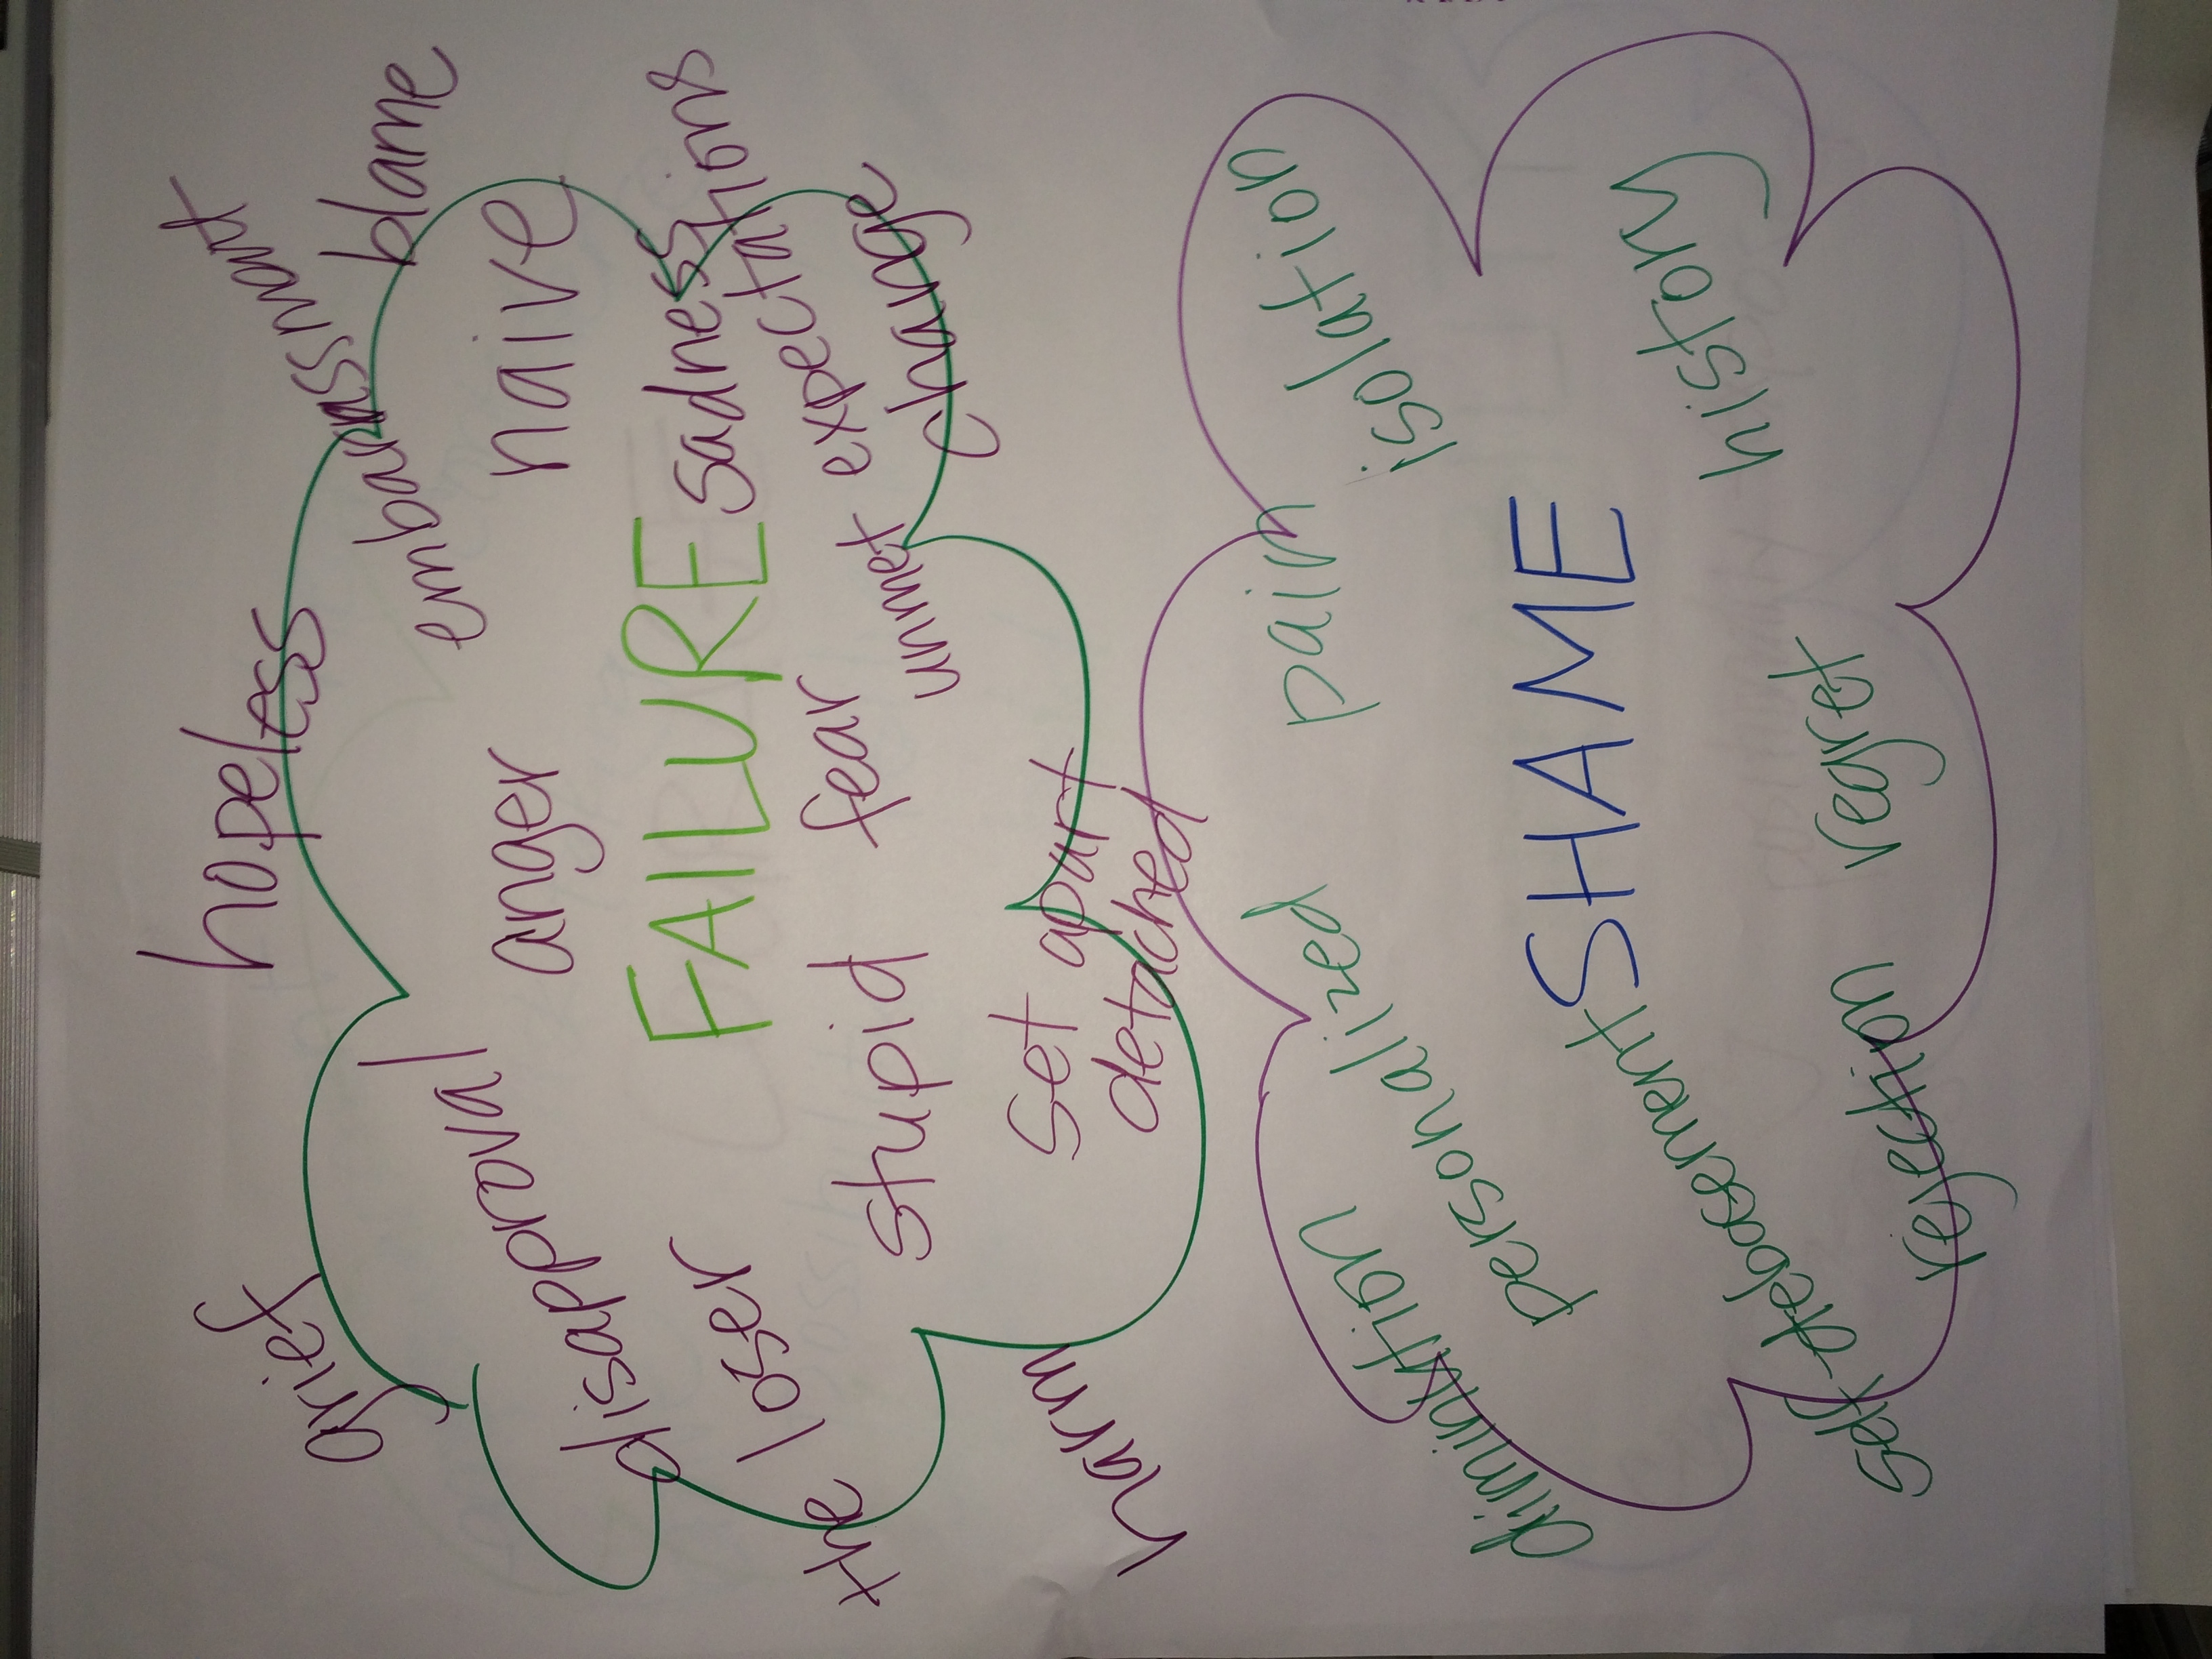 grief
hopeless
embarassment
blame
disaproval
anger
naive
FAILURE
sadness
the loser
stupid
fear
unmet expectations
change
set apart
detached
harm
diminution
personalized
pain
isolation
SHAME
self-debasement
history
rejection
regret